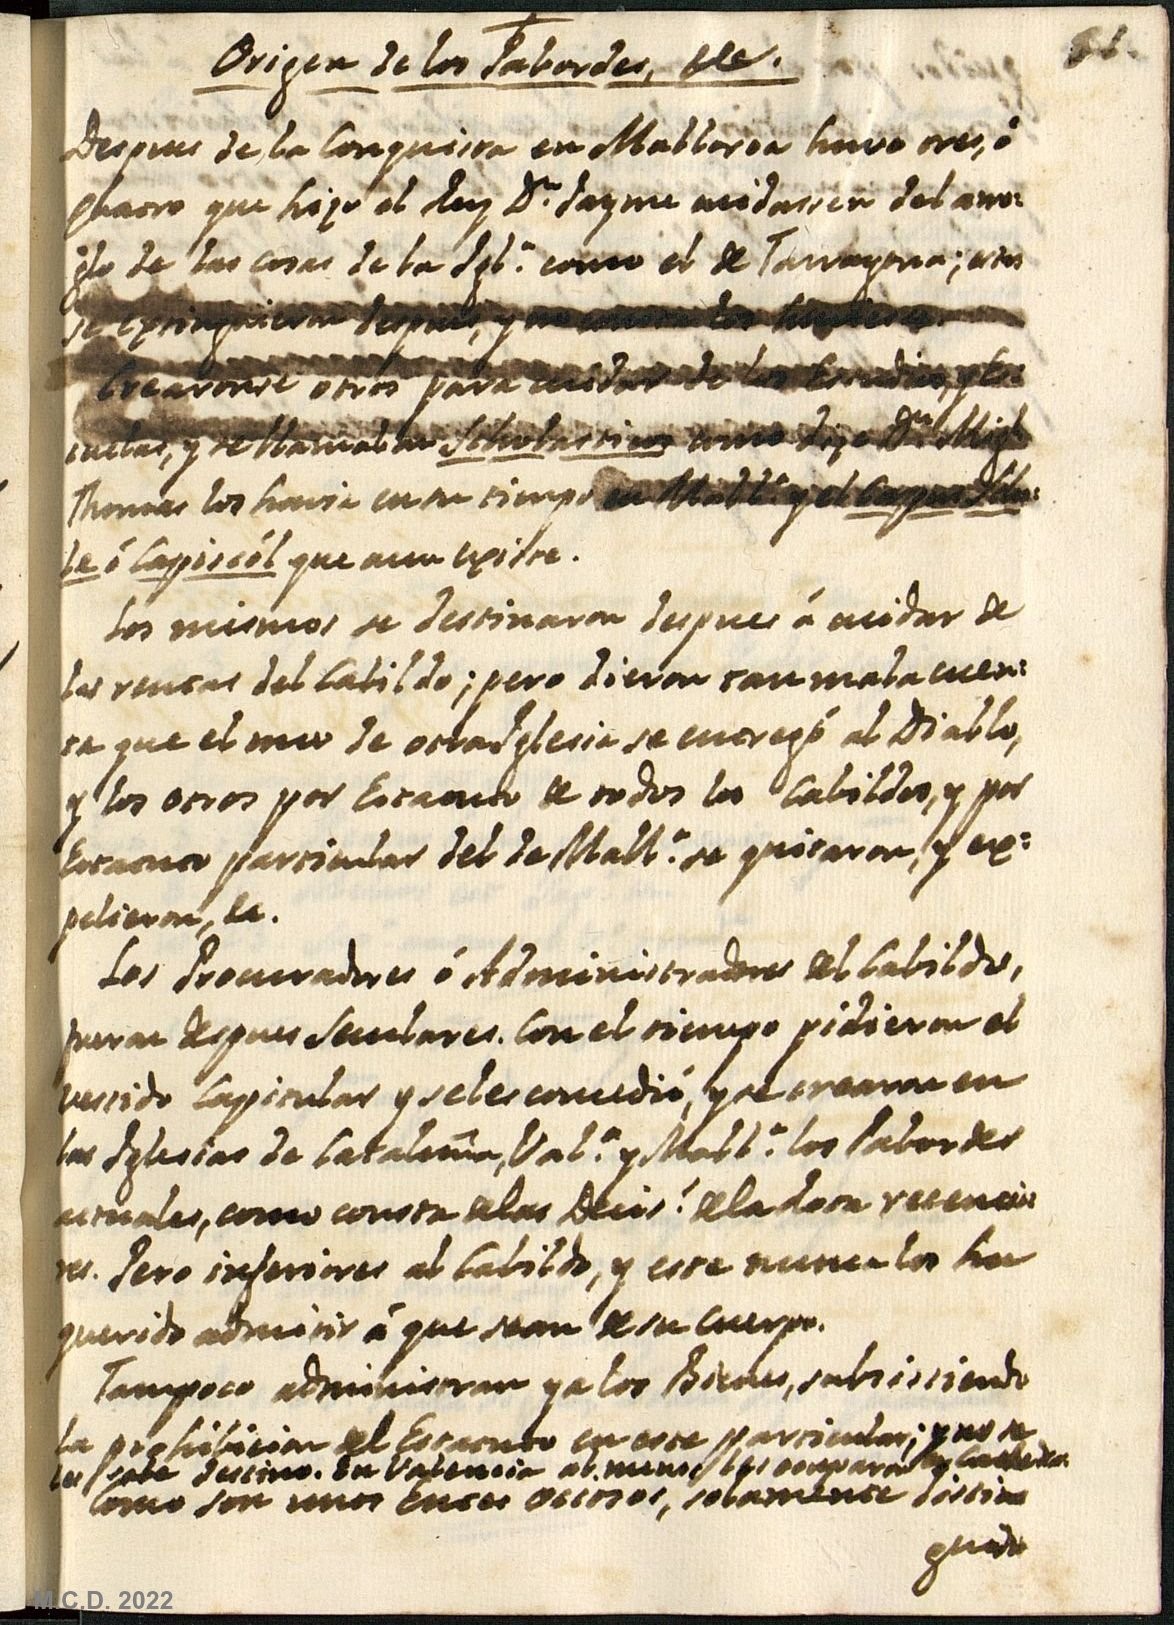 61.
Origen de los Pabordes, &c.
Despues de la Conquista en Mallorca huvo tres, ó
quatro que hizo el Rey Dn. Jayme cuidassen del arre=
glo de las cosas de la Igla. como el de Tarragona; estos
se extinguieron despues, y no consta los huviesse.
Crearonse otros para cuidar de los Estudios, y Es=
cuelas, y se llamaban Scholasticos como dize Dn. Migl.
Thomas los havia en su tiempo en Mallca. y el Caput Scho=
le ó Capiscól que aun existe.
Los mismos se destinaron despues á cuidar de
las rentas del Cabildo; pero dieron tan mala cuen=
ta que el uno de otra Iglesia se entregó al Diablo,
y los otros por Estatuto de todos los Cabildos, y por
Estatuto particular del de Mallca. se quitaron, y ex=
pelieron, &c.
Los Procuradores ó Administradores del Cabildo,
fueron despues Seculares. Con el tiempo pidieron el
vestido Capitular y se les concedió, y se crearon en
las Iglesias de Cataluña, Vala. y Mallca. los Pabordes
actuales, como consta de las Decis.s de la Rota recentio=
res. Pero inferiores al Cabildo, y este nunca los ha
querido admitir á que sean de su Cuerpo.
Tampoco administran ya los Bienes, subsistiendo
la prohibicion del Estatuto en este particular; y no se
les sabe destino. En Valencia al menos les ocuparon las Cathedras
Como son unos Entes ociosos, solamente distin
guido
M.C.D. 2022